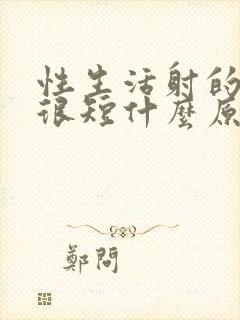 性生活射的
很短什麼原
鄭問